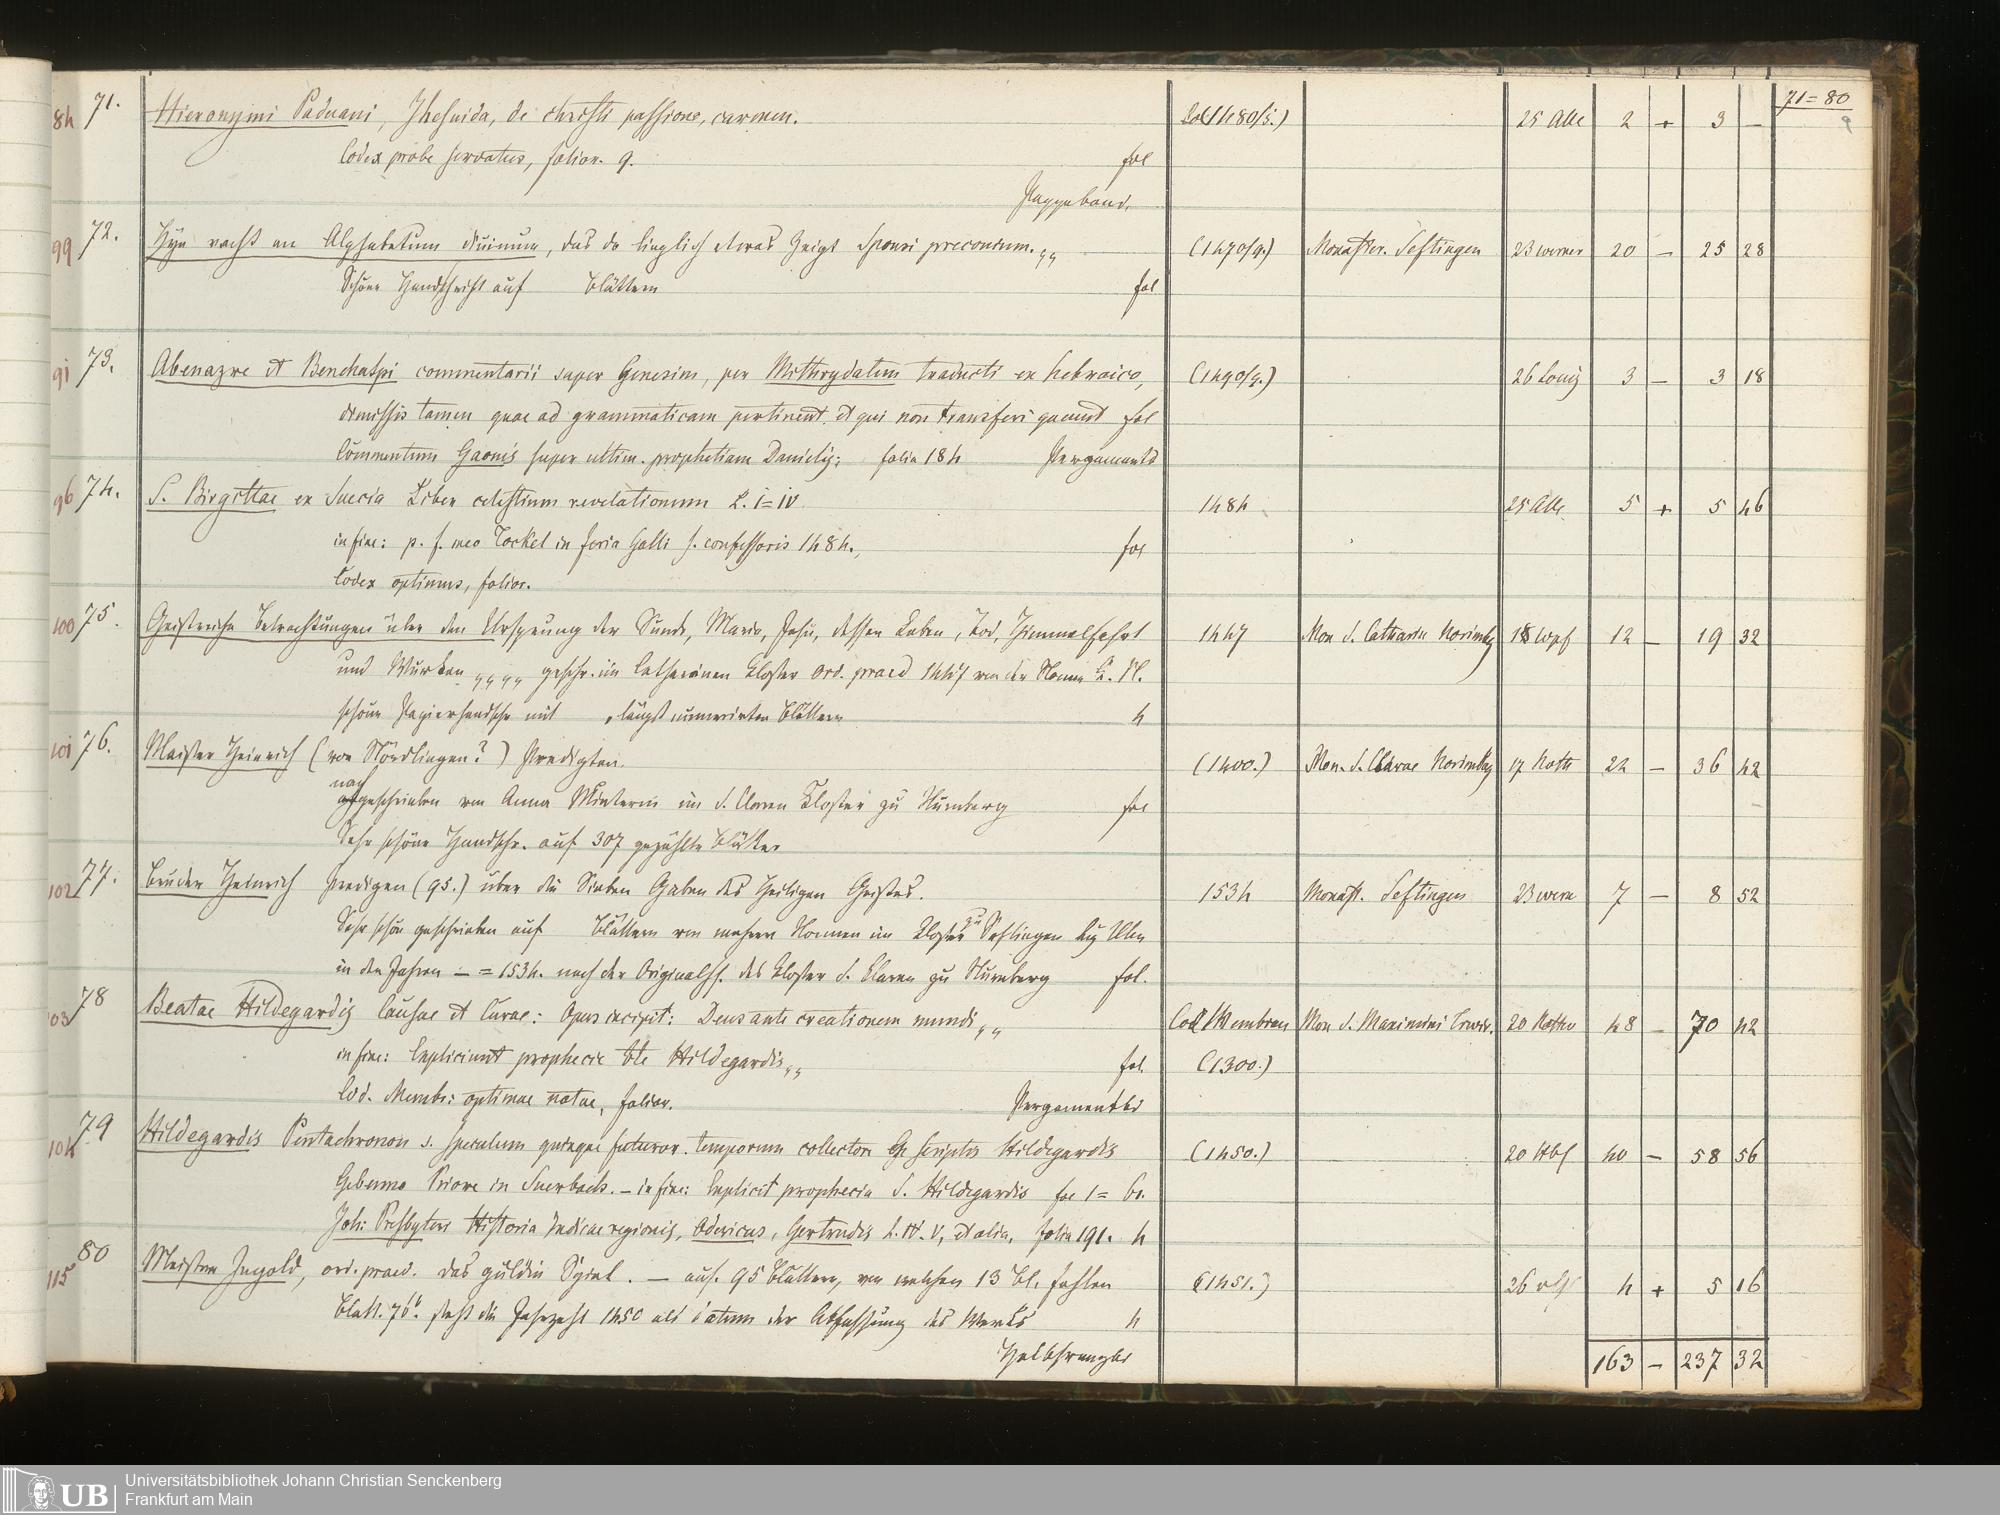 71=80
9
84 71. Hieronymi Paduani, Jhesuida, de christi passione, carmen. (1480/5.) 25 Abb 2 + 3 —
Codex probe servatus, folior. 9. fol
Pappeband.
99 72. Hye nachst an Alphabetum diuinum, das do lieplich etwas zeigt sponsi preconium. „ (1470/9.) Monaster. Seflingen 23 werner 20 — 25 28
Schöne Handschrift auf Blättern fol
91 73. Abenazre et Benchatpi commentarii super Genesim, per Mithrydatem traducti ex hebraico, (1490/9.) 26 3 — 3 18
demissis tamen quae ad grammaticam pertinent et qui non transferi queunt fol
Commentum Gaonis super ultim. prophetiam Danielis; folia 184 Pergamentb
96 74. S. Birgittae ex Suecia Liber celestium revelationum L. I=IV 1484 25 Abb. 5 + 5 46
in fine: p. f. meo Tockel in feria Galli s. confessoris 1484., fol
Codex optimus, folior.
100 75. Geistreiche Betrachtungen über den Ursprung der Sünde, Maria, Jesu, dessen Leben, Tod, Himmelfahrt 1447 Mon S. Catharin Norimbg 18 wpf 12 — 19 32
und Wurken „„ geschr. im Catharinen Kloster ord. praed 1447 von der Nonne K. N.
schöne Papierhandschr mit , längst numerirten Blättern 4
101 76. Maister Heinrich (von Nördlingen?) Predigten. (1400.) Mon. S. Clarae Norimbg 17 Roth 22 — 36 42
nachgeschrieben von Anna Winterin im S. Claren Kloster zu Nürnberg fol
Sehr schöne Handschr. auf 307 gezählte Blätter
102 77. Bruder Heinrich Predigen (95.) über die Sieben Gaben des Heiligen Geistes. 1534 Monast. Seflingen 23 wern 7 — 8 52
Sehr schön geschrieben auf Blättern von mehren Nonnen im Kloster zu Seflingen bey Ulm
in den Jahren — = 1534. nach der Originalhs. des Kloster S. Claren zu Nürnberg fol.
103 78 Beatae Hildegardis Causae et Curae: Opus incipit: Deus ante creationem mundi „ Cod Membran Mon S. Maximini Trevir. 20 Rothb 48 — 70 42
in fine: Expliciunt prophecie bte Hildegardis „ fol. (1300.)
Cod. Membr: optimae notae, folior. Pergamentbd
104 79 Hildegardis Pentachronon s. speculum quinque futuror. temporum collectore Ex scriptis Hildegardis (1450.) 20 Hbf 40 — 58 56
Gebenno Priore in Suerbach. — in fine: Explicit prophecia S. Hildegardis fol 1= 61.
Joh: Presbyters Historia Indicae regionis, Odericus, Gertrudis L. IV. V, et alia, folia 191. 4
115 80 Meister Ingold, ord. praed. das guldin Spiel. — auf 95 Blättern, von welchen 13 Bl. fehlen (1451.) 26 4 + 5 16
Blatt. 76b. steht die Jahrzahl 1450 als datum der Abfassung des Werks 4
Halbfranzbd
163 — 237 32
UB Universitätsbibliothek Johann Christian Senckenberg
Frankfurt am Main